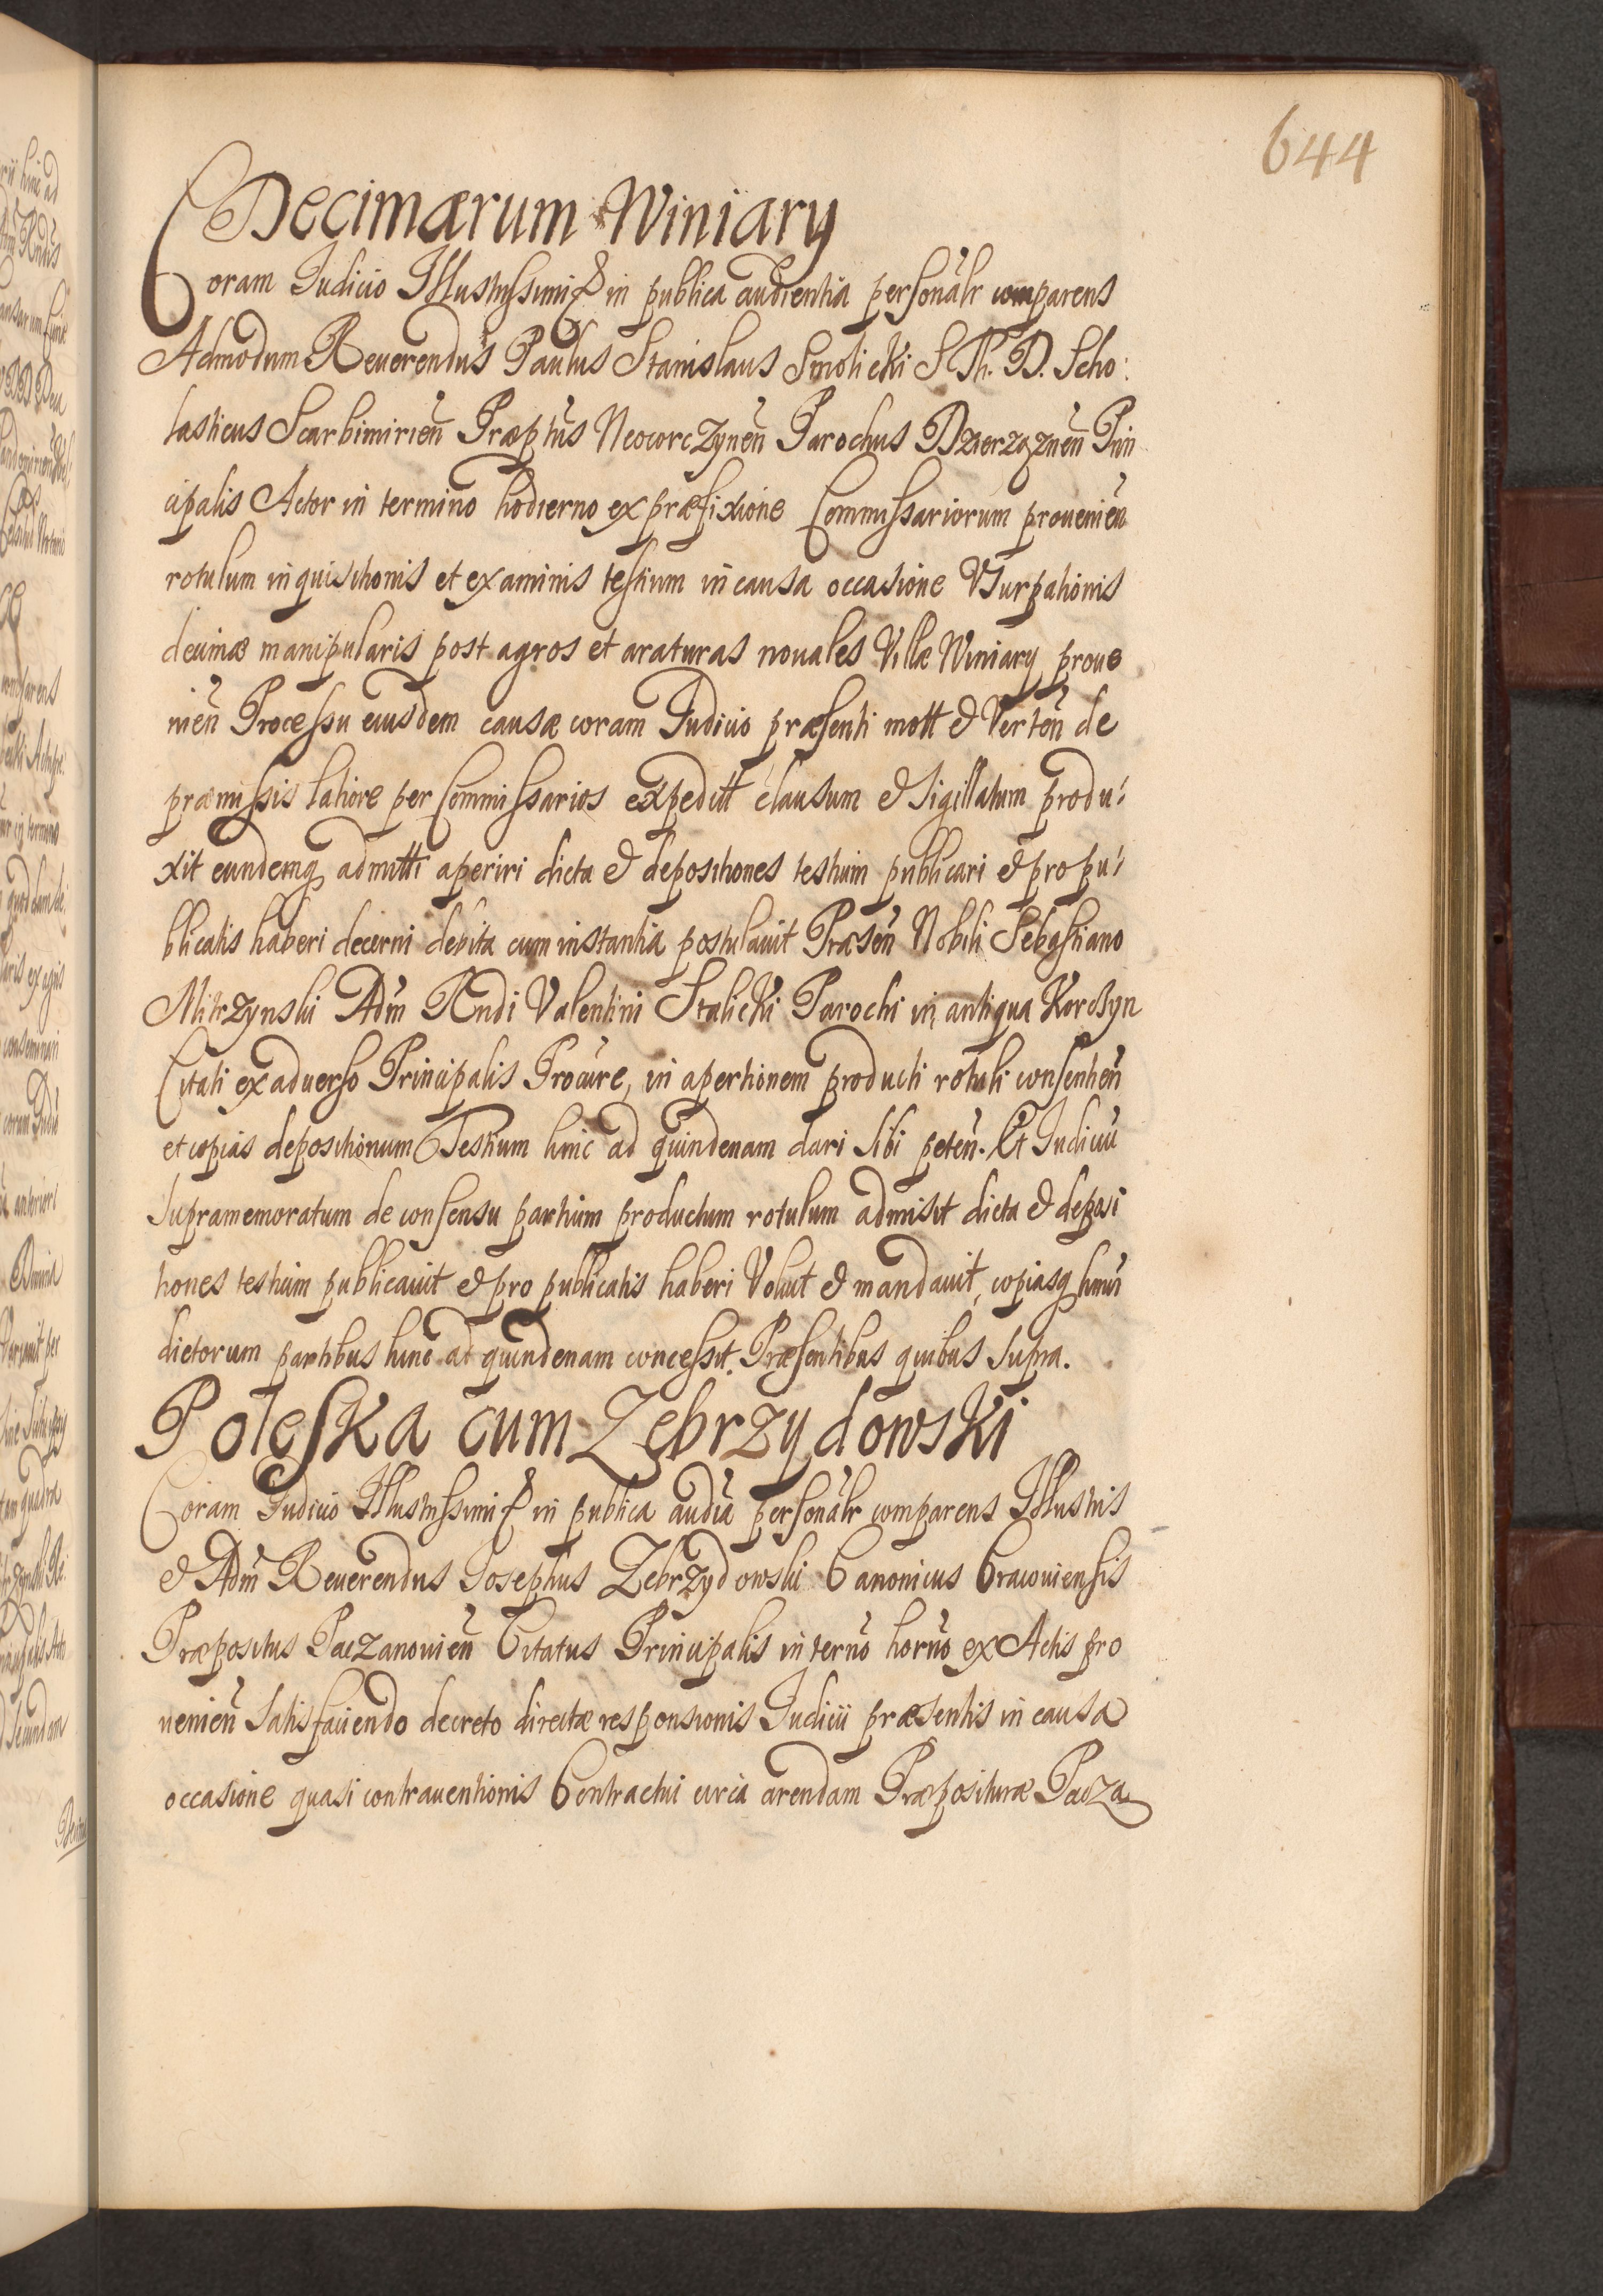 644
Decimarum Winiary
Coram Iudicio Illustrissimi & in publica audientia personalr comparens
Admodum Reuerendus Paulus Stanislaus Smolicki S. Th. D. Scho:
lasticus Scarbimirien Præptus Neocorczynen Parochus Dzierzążnen Prin
cipalis Actor in termino hodierno ex præfixione Commissariorum prouenien
rotulum inquisitionis et examinis testium in causa occasione Vsurpationis
decimæ manipularis post agros et araturas nouales Villæ Winiary proue
nien Processu eiusdem causæ coram Iudicio præsenti mott & Verten de
præmissis latiore per Commissarios expeditt clausum & sigillatum produ:
xit eundemq admitti aperiri dicta & depositiones testium publicari & pro pu:
blicatis haberi decerni debita cum instantia postulauit Præsen Nobili Sebastiano
Mitrzynski Adm Rndi Valentini Stalicki Parochi in antiqua Korczyn
Citati ex aduerso Principalis Procure, in apertionem producti rotuli consentien
et copias depositionum Testium hinc ad quindenam dari sibi peten. Et Iudiciu
supramemoratum de consensu partium productum rotulum admisit dicta & deposi
tiones testium publicauit & pro publicatis haberi Voluit & mandauit, copiasq
dictorum partibus hinc ad quindenam concessit. Præsentibus quibus supra.
Poleska cum Zebrzydowski
Coram Iudicio Illustrissimi & in publica audia personalr comparens Illustris
& Adm Reuerendus Iosephus Zebrzydowski Canonicus Cracouiensis
Præpositus Paczanouien Citatus Principalis in terno horno ex Actis pro
uenien satisfaciendo decreto directæ responsionis Iudicii præsentis in causa
occasione quasi contrauentionis Contractui circa arendam Præposituræ Pacza